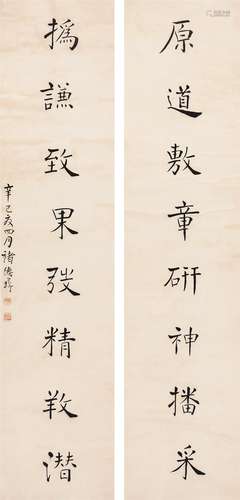 原道敷章研神播采
撝謙致果弢精潛
辛巳夏四月褚德彝